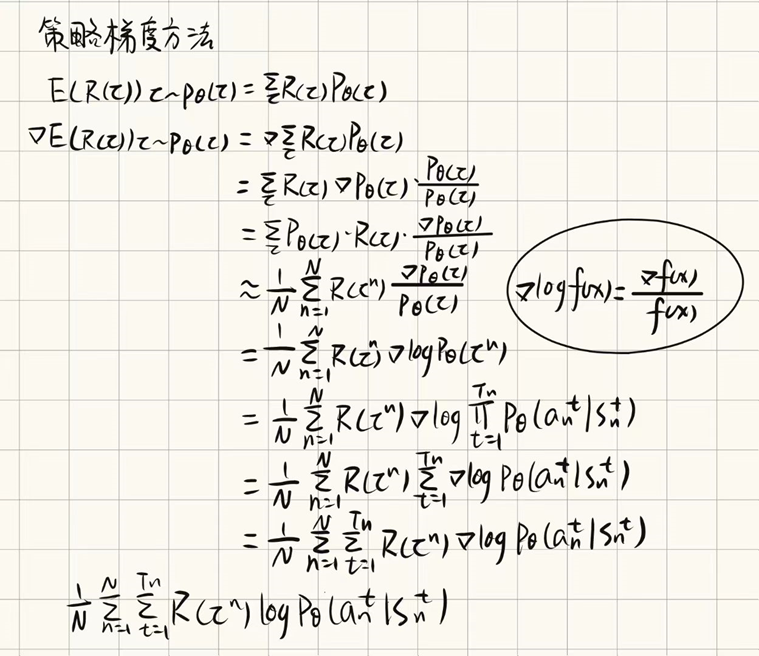 策略梯度方法
E(R(τ))τ~Pθ(τ) = Σ_τ R(τ)Pθ(τ)
∇E(R(τ))τ~Pθ(τ) = ∇Σ_τ R(τ)Pθ(τ)
= Σ_τ R(τ)∇Pθ(τ)·Pθ(τ)/Pθ(τ)
= Σ_τ Pθ(τ)·R(τ)·∇Pθ(τ)/Pθ(τ)
≈ 1/N Σ_{n=1}^{N} R(τ^n) ∇Pθ(τ)/Pθ(τ)
∇log f(x) = ∇f(x)/f(x)
= 1/N Σ_{n=1}^{N} R(τ^n)∇log Pθ(τ^n)
= 1/N Σ_{n=1}^{N} R(τ^n)∇log Π_{t=1}^{Tn} Pθ(a_n^t|s_n^t)
= 1/N Σ_{n=1}^{N} R(τ^n) Σ_{t=1}^{Tn} ∇log Pθ(a_n^t|s_n^t)
= 1/N Σ_{n=1}^{N} Σ_{t=1}^{Tn} R(τ^n)∇log Pθ(a_n^t|s_n^t)
1/N Σ_{n=1}^{N} Σ_{t=1}^{Tn} R(τ^n) log Pθ(a_n^t|s_n^t)